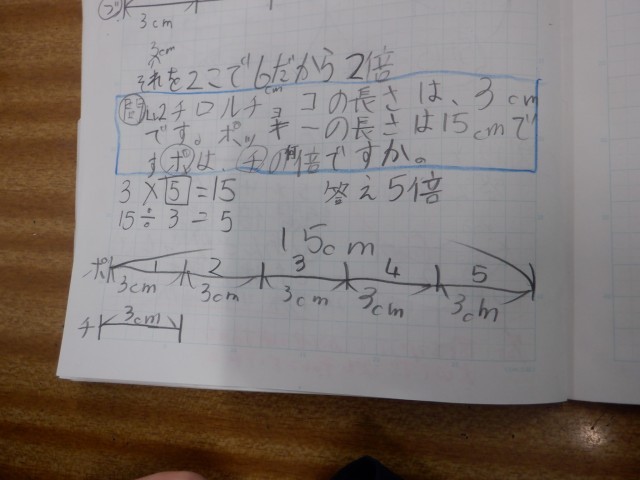 ブ
3cm
3cm
それを2こで6だから2倍
問い2チロルチョコの長さは、3cm
です。ポッキーの長さは15cmで
すポは、チの何倍ですか。
3×5=15 答え5倍
15÷3=5
15cm
ポ 1 2 3 4 5
3cm 3cm 3cm 3cm 3cm
チ 3cm